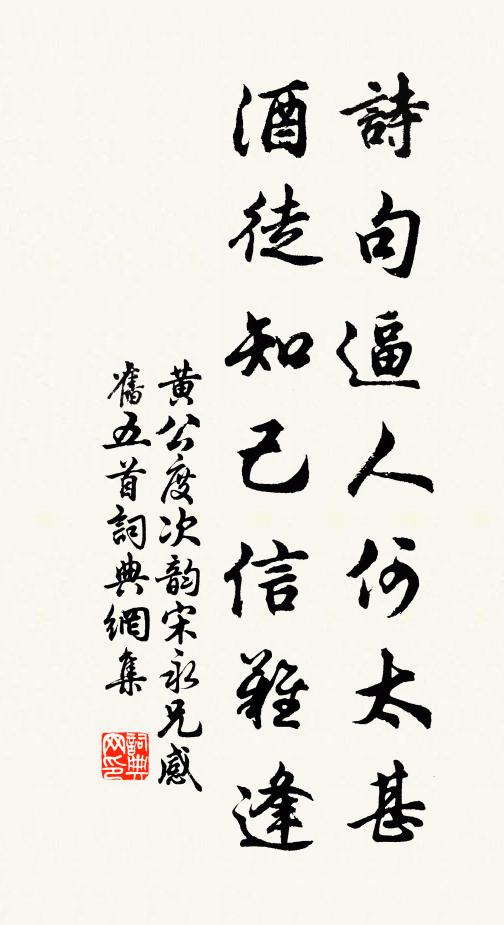 詩句逼人何太甚
酒徒知己信難逢
黄公度次韵宋永兄感
舊五首詞典網集
詞典網印